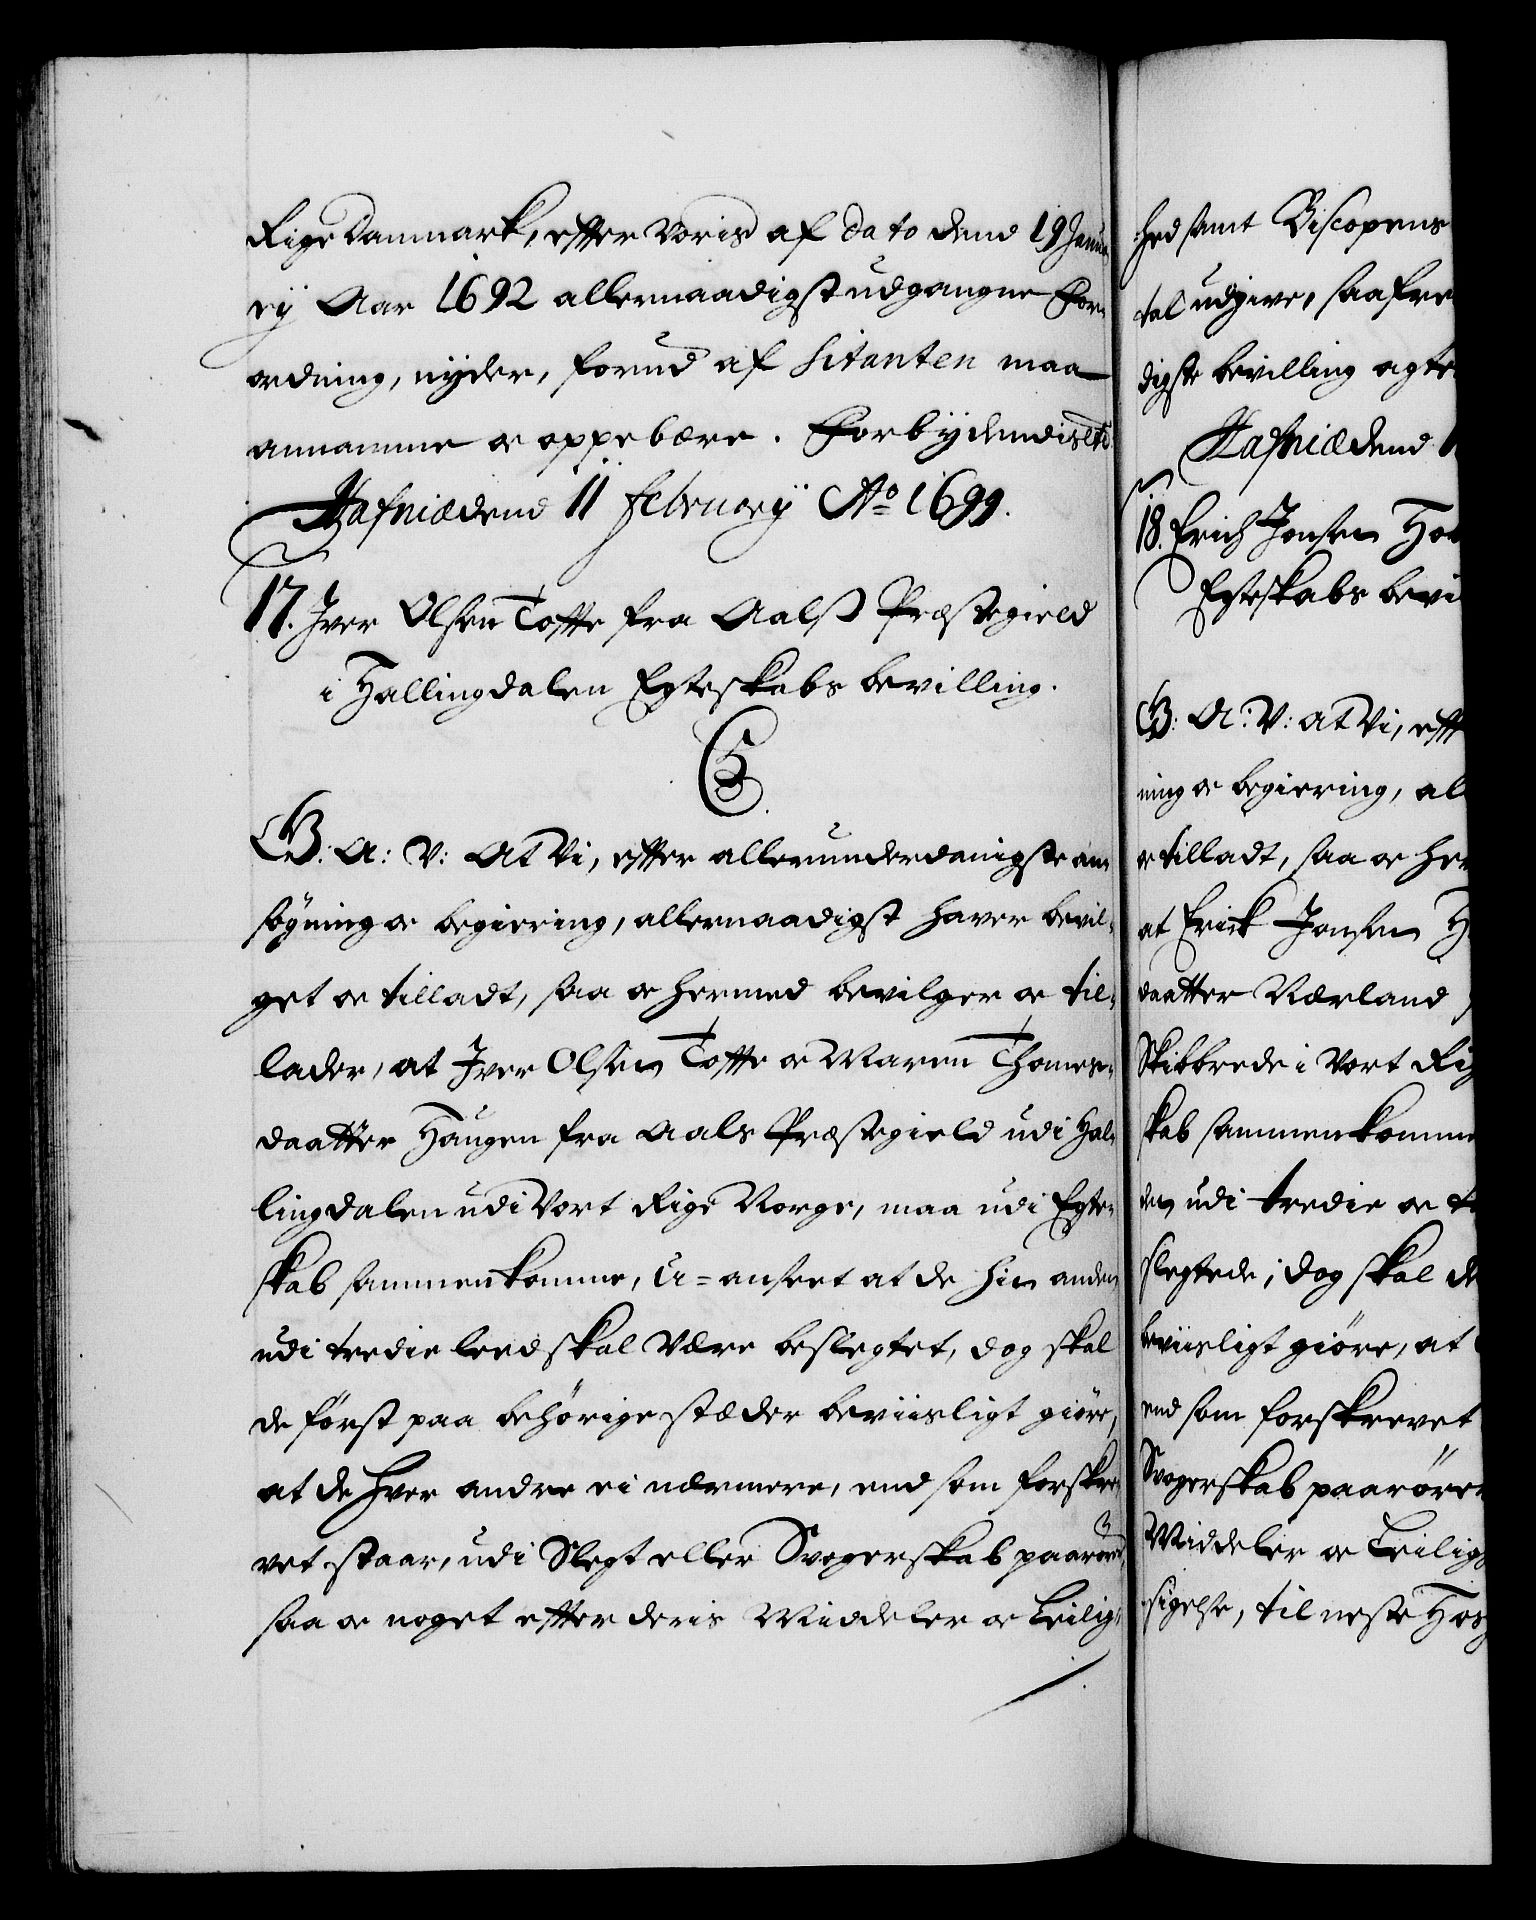 Rige Danmark, effter Voris af dato dend 19 Janua¬
rij Aar 1692 allernaadigst udgangne For¬
ordning, nyder, forud af Sitanten maa
annamme oc oppebære. Forbydendis etc
Hafniæ dend 11 februarij Ao 1699.
17. Jver Olsen Toffte fra Aalß Præstegield
i Hallingdalen Egteskabs bevilling.
C5.
G: A: V: At Vi, effter allerunderdanigste an¬
søgning oc begiering, allernaadigst haver bevil¬
get oc tilladt, saa oc hermed bevilger oc til¬
lader, at Jver Olsen Toffte oc Maren Thomes¬
daatter Haugen fra Aals Præstegield udi Hal¬
lingdalen udi Vort Rige Norge, maa udi Egte¬
skab sammenkomme, U=anseet at de hin anden
udi tredie leed skal være beslegtet, dog skal
de først paa behørige stæder beviisligt giøre,
at de hver andre ei nærmere, end som forskre¬
vet staar, udi Slegt eller Svogerskab paarører,
saa oc noget effter deris Middeler oc Leilig¬
hed samt Biscopens
tal udgive, saafre
digste bevilling agte
Hafniæ dend 1
18. Erich Jonsen Ho
Egteskabs bevi
G: A: V: at Vi, efft
ning oc begiering, al
oc tilladt, saa oc her
at Erick Jonsen H
daatter Nærland
Skibbrede i Vort Rig
skab sammenkomme
den udi tredie oc
slegtede; dog skal de
beviisligt giøre, at
end som forskrevet
Svogerskab paarører
Middeler oc Leilig
sigelse, til neste Hos